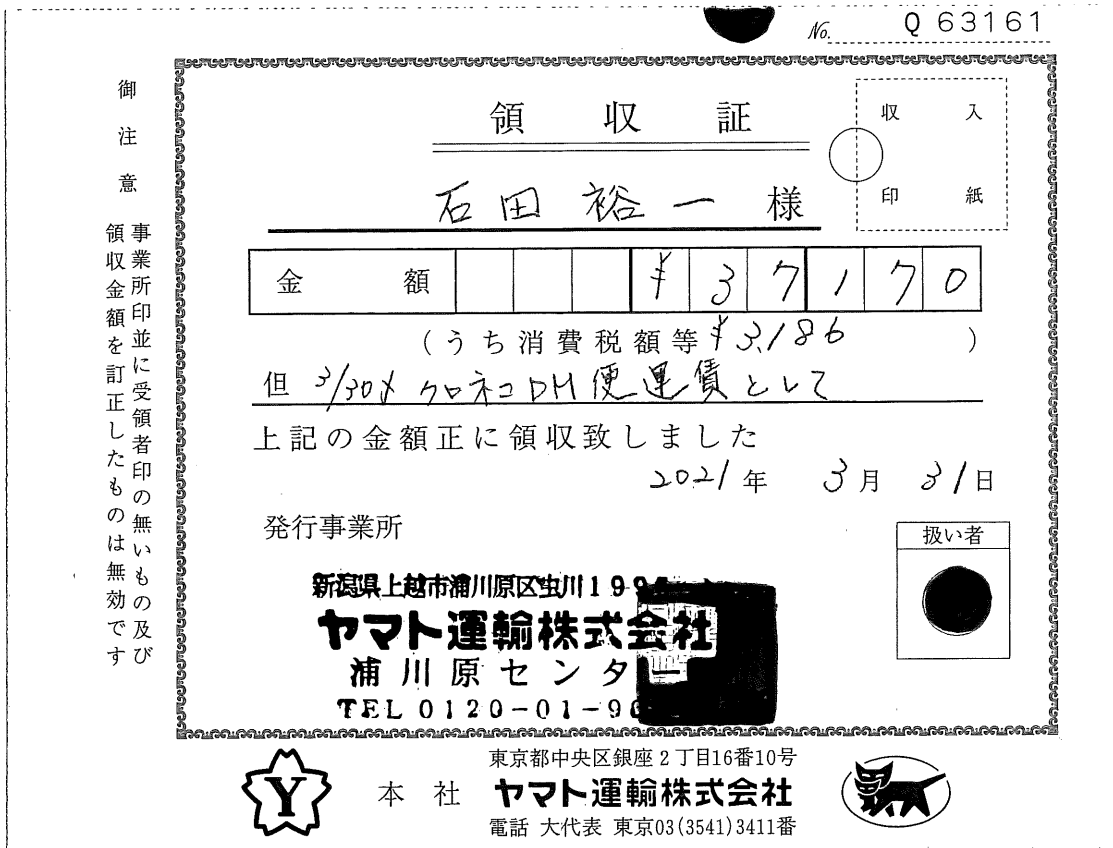 No. Q 63161
御注意
事業所印並に受領者印の無いもの及び
領収金額を訂正したものは無効です
領収証
収入
印紙
石田裕一様
金額 ¥37170
(うち消費税額等¥3,186)
但 3/30〆 クロネコDM便運賃として
上記の金額正に領収致しました
2021年 3月 31日
発行事業所
扱い者
新潟県上越市浦川原区虫川199
ヤマト運輸株式会社
浦川原センター
TEL 0120-01-9
東京都中央区銀座2丁目16番10号
Y
本社 ヤマト運輸株式会社
電話 大代表 東京03(3541)3411番